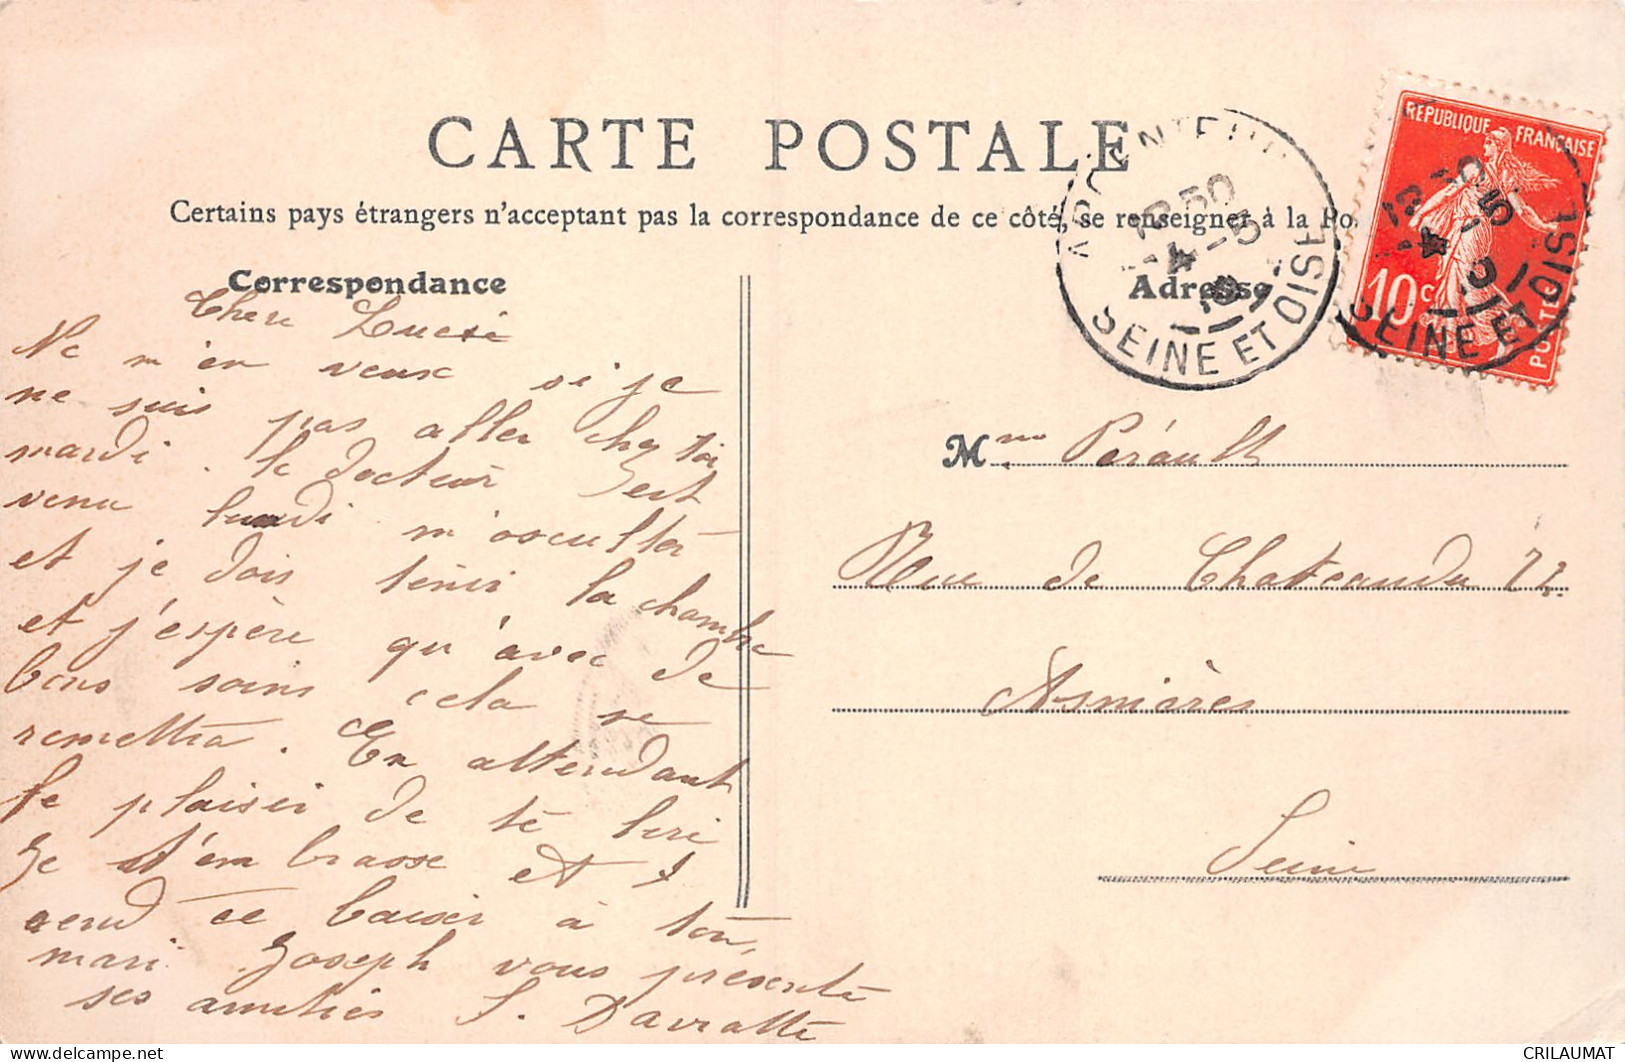 CARTE POSTALE
Certains pays étrangers n'acceptent pas la correspondance de ce côté, se renseigner à la Po
Correspondance
Adresse
REPUBLIQUE FRANÇAISE
10c
POSTES
SEINE ET OISE
SEINE ET OISE
Chere Lucsi
Ne m'en veux si je
ne suis pas aller chez toi
mardi. le docteur est
venu lundi m'osculter
et je dois tenir la chambre
et j'espère qu'avec de
bons soins cela se
remettra. En attendant
le plaisir de te lire
Je t'em brasse et
rend ce baiser à ton
mari Joseph vous présente
ses amitiés S. Davratte
Mme Perault
Rue de Chateaudu 22
Asnières
Seine
CRILAUMAT